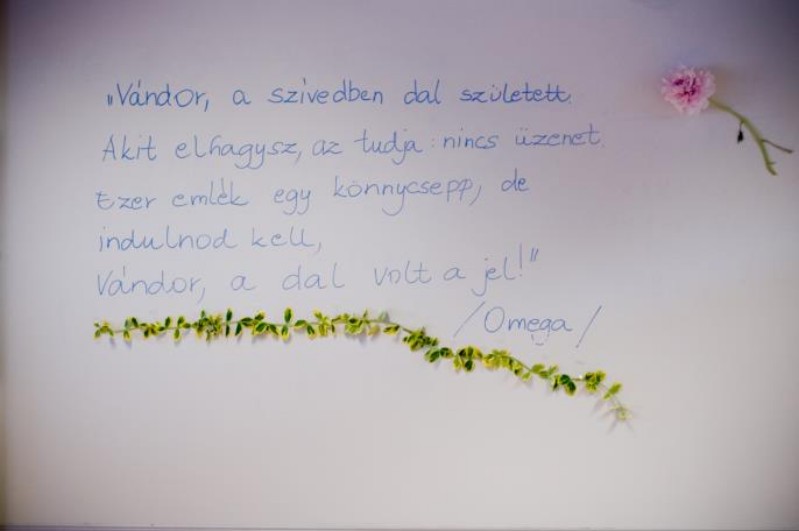 „Vándor, a szivedben dal született.
Akit elhagysz, az tudja: nincs üzenet.
Ezer emlék egy könnycsepp, de
indulnod kell,
Vándor, a dal volt a jel!"
/Omega/